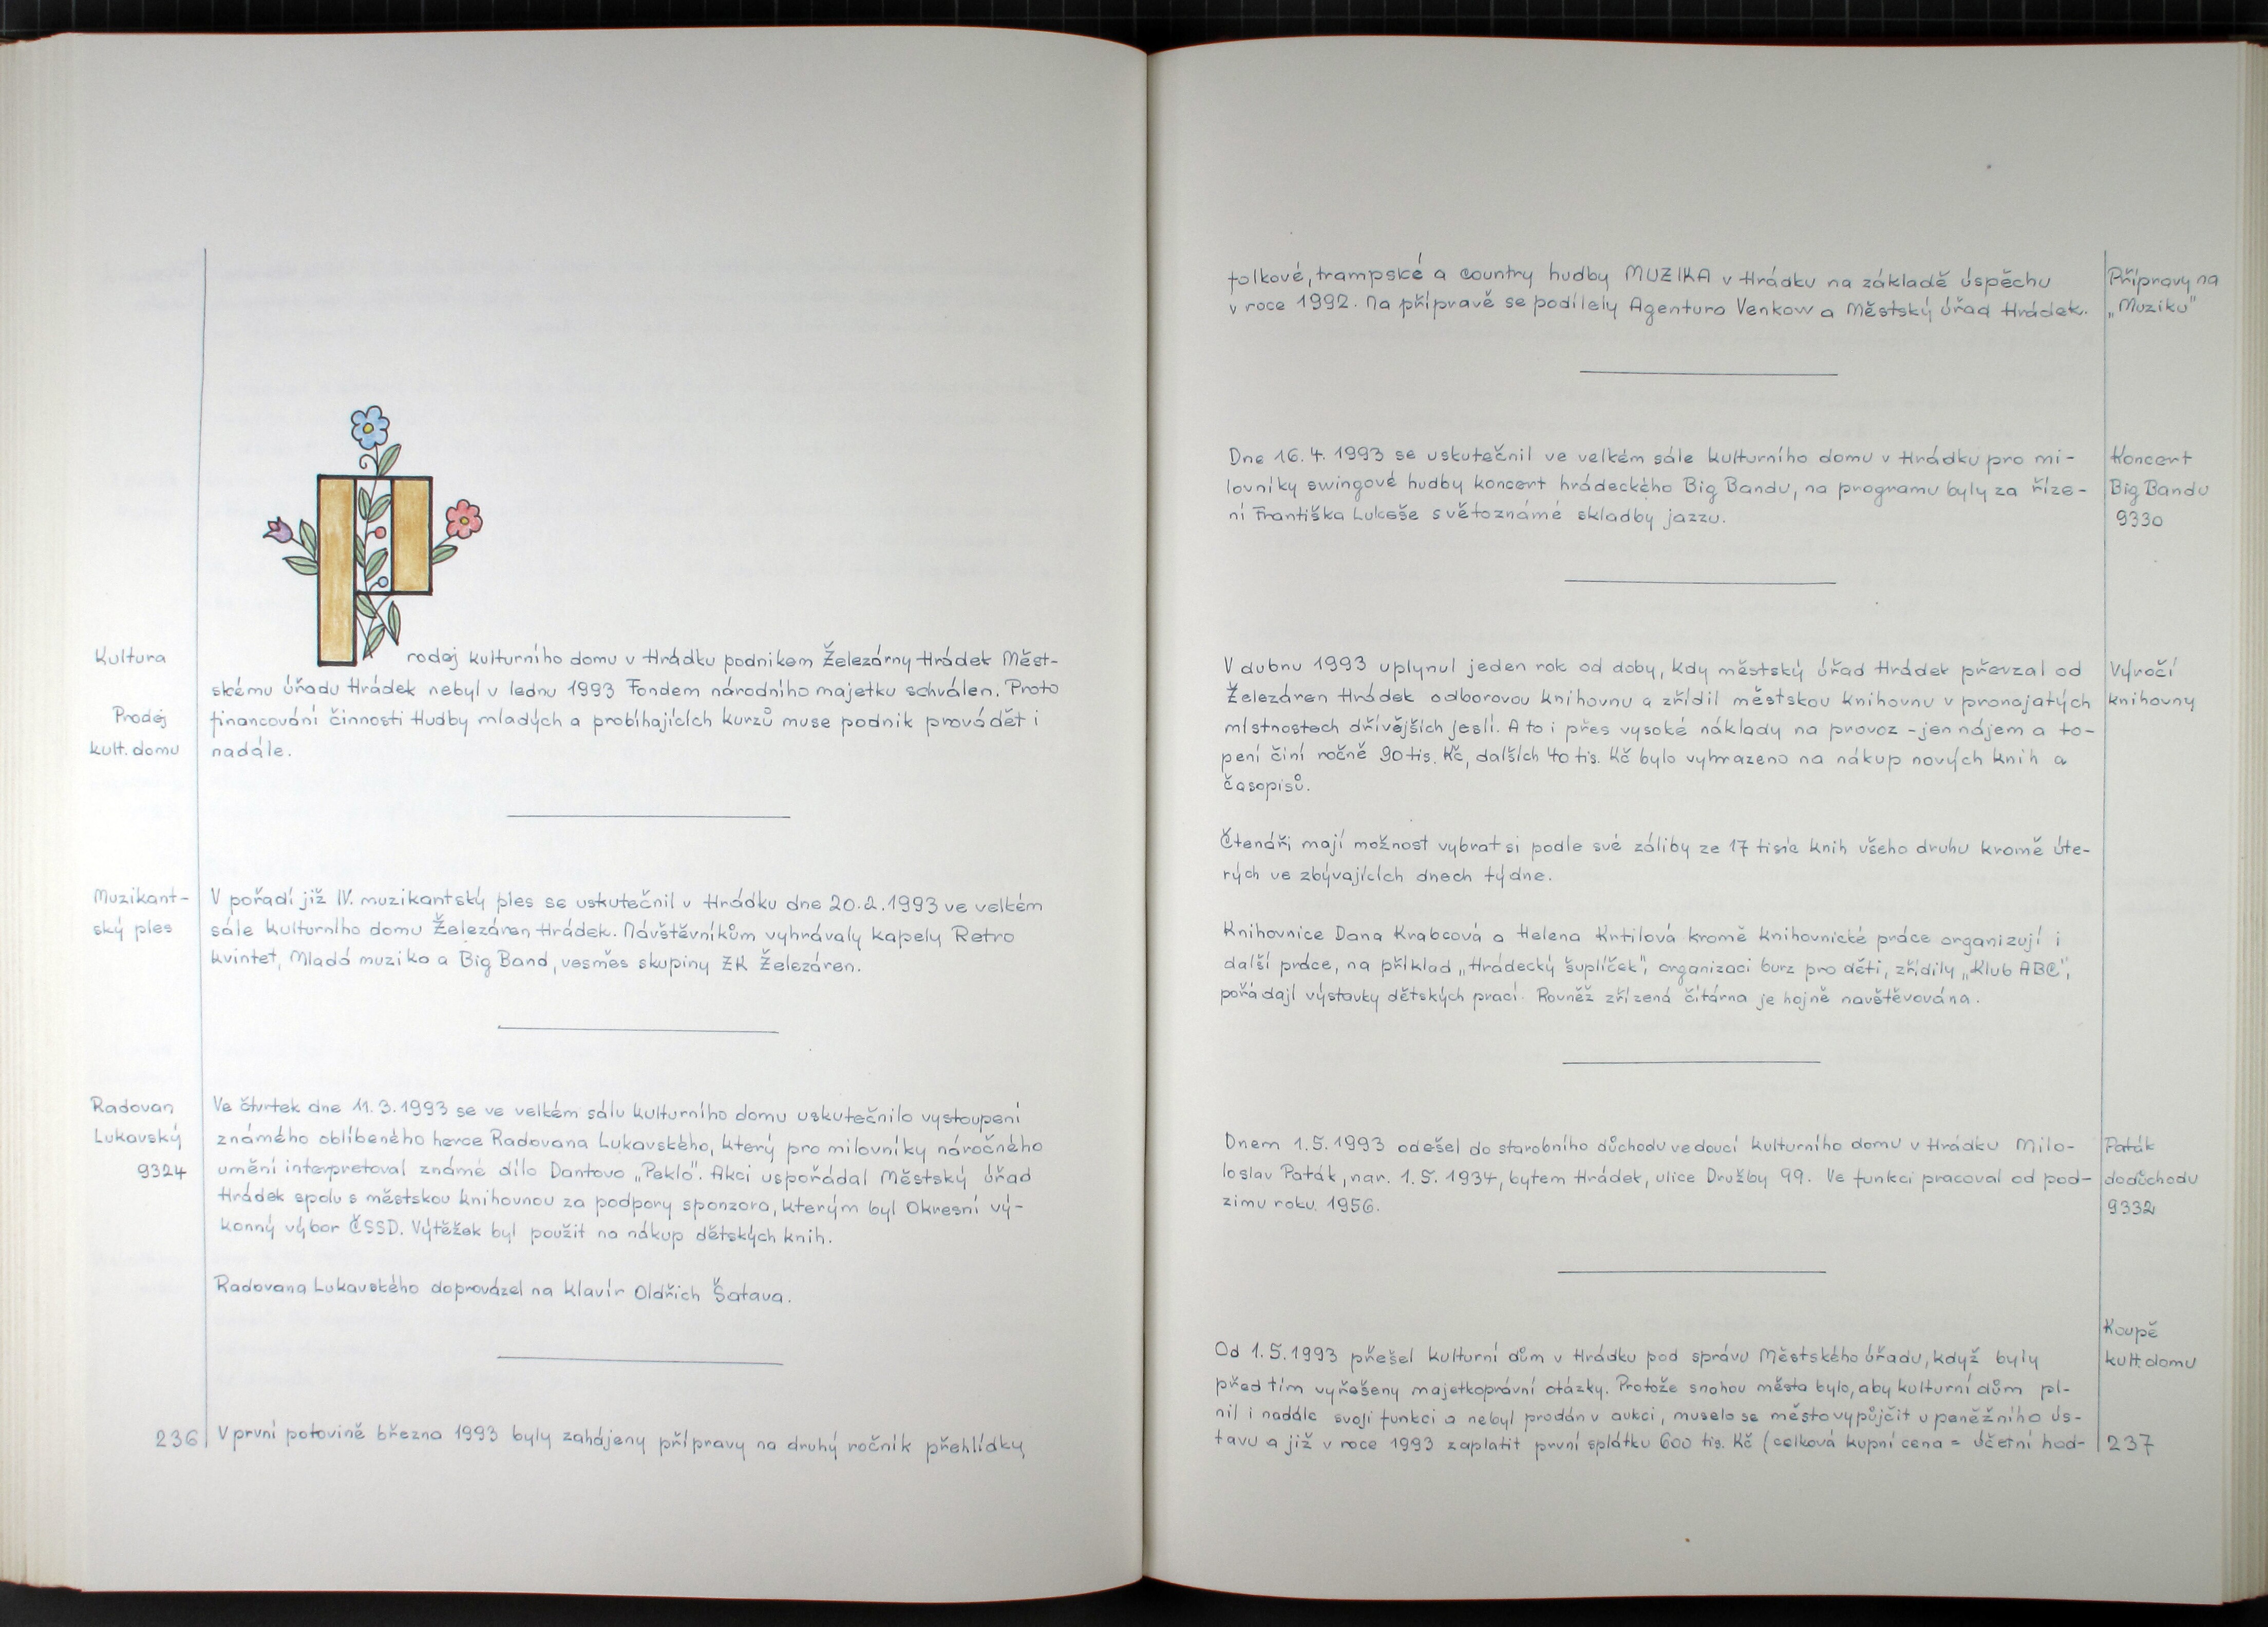 Kultura
Prodej
kult. domu
Prodej kulturního domu v Hrádku podnikem Železárny Hrádek Měst-
skému úřadu Hrádek nebyl v lednu 1993 Fondem národního majetku schválen. Proto
financování činnosti Hudby mladých a probíhajících kurzů muse podnik provádět i
nadále.
Muzikant-
ský ples
V pořadí již IV. muzikantský ples se uskutečnil v Hrádku dne 20.2.1993 ve velkém
sále kulturního domu Železáren Hrádek. Návštěvníkům vyhrávaly kapely Retro
kvintet, Mladá muzika a Big Band, vesměs skupiny ZK Železáren.
Radovan
Lukavský
9324
Ve čtvrtek dne 11.3.1993 se ve velkém sálu kulturního domu uskutečnilo vystoupení
známého oblíbeného herce Radovana Lukavského, který pro milovníky náročného
umění interpretoval známé dílo Dantovo „Peklo". Akci uspořádal Městský úřad
Hrádek spolu s městskou knihovnou za podpory sponzora, kterým byl Okresní vý-
konný výbor ČSSD. Výtěžek byl použit na nákup dětských knih.
Radovana Lukavského doprovázel na klavír Oldřich Šatava.
236
V první polovině března 1993 byly zahájeny přípravy na druhý ročník přehlídky
folkové, trampské a country hudby MUZIKA v Hrádku na základě úspěchu
v roce 1992. Na přípravě se podílely Agentura Venkow a Městský úřad Hrádek.
Přípravy na
„Muziku"
Dne 16.4.1993 se uskutečnil ve velkém sále kulturního domu v Hrádku pro mi-
lovníky swingové hudby koncert hrádeckého Big Bandu, na programu byly za říze-
ní Františka Lukeše světoznámé skladby jazzu.
Koncert
Big Bandu
9330
V dubnu 1993 uplynul jeden rok od doby, kdy městský úřad Hrádek převzal od
Železáren Hrádek odborovou knihovnu a zřídil městskou knihovnu v pronajatých
místnostech dřívějších jeslí. A to i přes vysoké náklady na provoz - jen nájem a to-
pení činí ročně 90 tis. Kč, dalších 40 tis. Kč bylo vyhrazeno na nákup nových knih a
časopisů.
Výročí
knihovny
Čtenáři mají možnost vybrat si podle své záliby ze 17 tisíc knih všeho druhu kromě úte-
rých ve zbývajících dnech týdne.
Knihovnice Dana Krabcová a Helena Krtilová kromě knihovnické práce organizují i
další práce, na příklad „Hrádecký šuplíček", organizaci burz pro děti, zřídily „Klub ABC",
pořádají výstavky dětských prací. Rovněž zřízená čítárna je hojně navštěvována.
Dnem 1.5.1993 odešel do starobního důchodu vedoucí kulturního domu v Hrádku Milo-
loslav Paták, nar. 1.5.1934, bytem Hrádek, ulice Družby 99. Ve funkci pracoval od pod-
zimu roku 1956.
Paták
do důchodu
9332
Koupě
kult. domu
Od 1.5.1993 přešel kulturní dům v Hrádku pod správu Městského úřadu, když byly
před tím vyřešeny majetkoprávní otázky. Protože snahou města bylo, aby kulturní dům pl-
nil i nadále svoji funkci a nebyl prodán v aukci, muselo se město vypůjčit u peněžního ús-
tavu a již v roce 1993 zaplatit první splátku 600 tis. Kč (celková kupní cena = účetní hod-
237